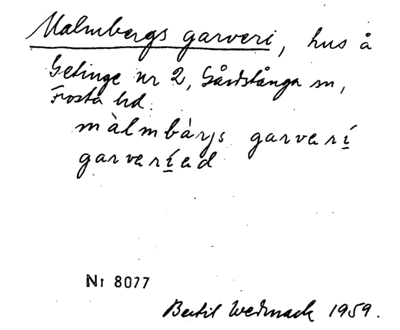 Malmbergs garveri, hus å
Getinge nr 2, Gårdstånga sn,
Frosta hd.
màlmbàrjs garverí
garveríed
Nr 8077
Bertil Wedmark 1959.